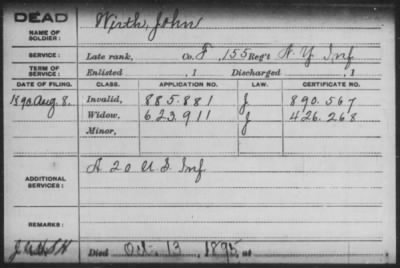 DEAD
NAME OF SOLDIER: Wirth, John
SERVICE: Late rank, Co. F, 155 Reg't N.Y. Inf
TERM OF SERVICE: Enlisted , 1 Discharged , 1
DATE OF FILING. CLASS. APPLICATION NO. LAW. CERTIFICATE NO.
1890 Aug. 8. Invalid, 885.881 J 890.567
Widow, 623.911 J 426.268
Minor,
ADDITIONAL SERVICES: A 20 U S Inf.
REMARKS:
Died Oct. 13, 1895, at